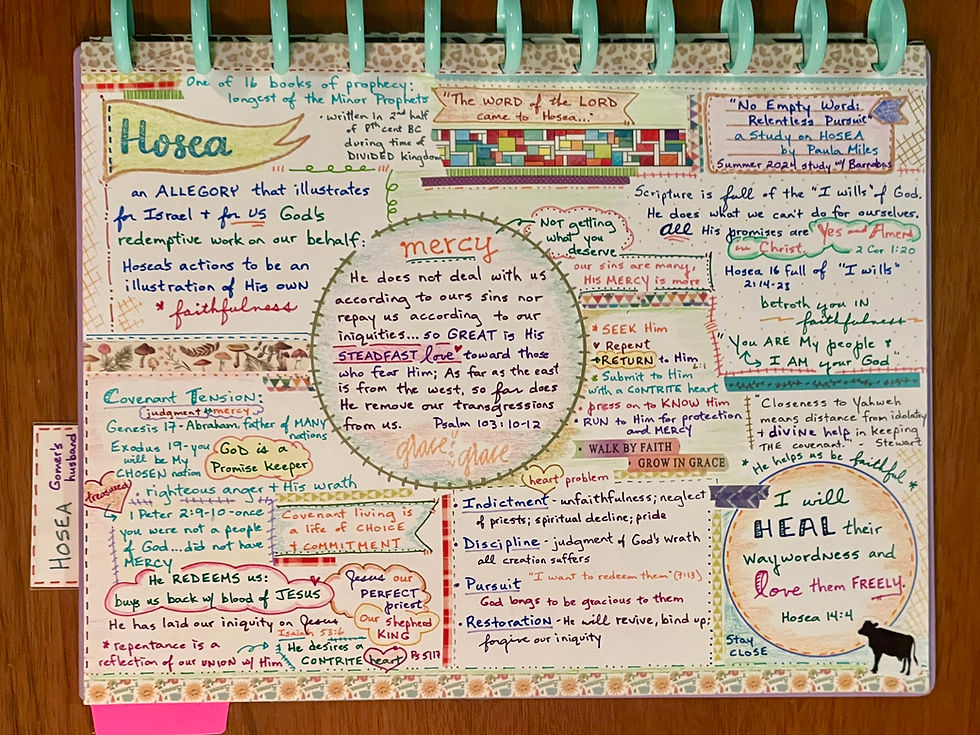 One of 16 books of prophecy:
longest of the Minor Prophets
• written in 2nd half
of 8th cent BC
during time of
DIVIDED kingdom
Hosea
an ALLEGORY that illustrates
for Israel + for US God's
redemptive work on our behalf:
Hosea's actions to be an
illustration of His own
* faithfulness
"The WORD of the LORD
came to Hosea..."
"No Empty Word:
Relentless Pursuit"
a Study on HOSEA
by Paula Miles
Summer 2024 study w/ Barnabas
Scripture is full of the "I wills" of God.
He does what we can't do for ourselves.
All His promises are Yes and Amen
in Christ. 2 Cor 1:20
Hosea 16 full of "I wills"
2:14-23
betroth you IN
faithfulness
"You ARE My people +
I AM your God"
mercy
Not getting
what you
deserve
He does not deal with us
according to ours sins nor
repay us according to our
iniquities...so GREAT is His
STEADFAST love toward those
who fear Him; As far as the east
is from the west, so far does
He remove our transgressions
from us. Psalm 103:10-12
grace & grace
our sins are many,
His MERCY is more
* SEEK Him
♥ Repent
→ RETURN to Him 6:1
* Submit to Him
with a CONTRITE heart
• press on to KNOW Him
• RUN to Him for protection
and MERCY
WALK BY FAITH
GROW IN GRACE
heart problem
"Closeness to Yahweh
means distance from idolatry
+ divine help in keeping
THE covenant." - Stewart
* He helps us be faithful *
Covenant Tension:
judgment ↔ mercy
Genesis 17- Abraham, father of MANY
nations
Exodus 19- you
will be My
CHOSEN nation
God is a
Promise Keeper
righteous anger + His wrath
treasured
1 Peter 2:9-10 - once
you were not a people
of God...did not have
MERCY
Covenant living is
a life of CHOICE
+ COMMITMENT
He REDEEMS us:
buys us back w/ blood of JESUS
Jesus our
PERFECT
priest
Our shepherd
KING
He has laid our iniquity on Jesus
Isaiah 53:6
* repentance is a
reflection of our UNION w/ Him
He desires a
CONTRITE heart Ps 51:17
• Indictment - unfaithfulness; neglect
of priests; spiritual decline; pride
• Discipline - judgment of God's wrath
all creation suffers
• Pursuit "I want to redeem them" (7:13)
God longs to be gracious to them
• Restoration - He will revive, bind up;
forgive our iniquity
I will
HEAL their
waywordness and
love them FREELY.
Hosea 14:4
Stay
CLOSE
HOSEA
Gomer's
husband